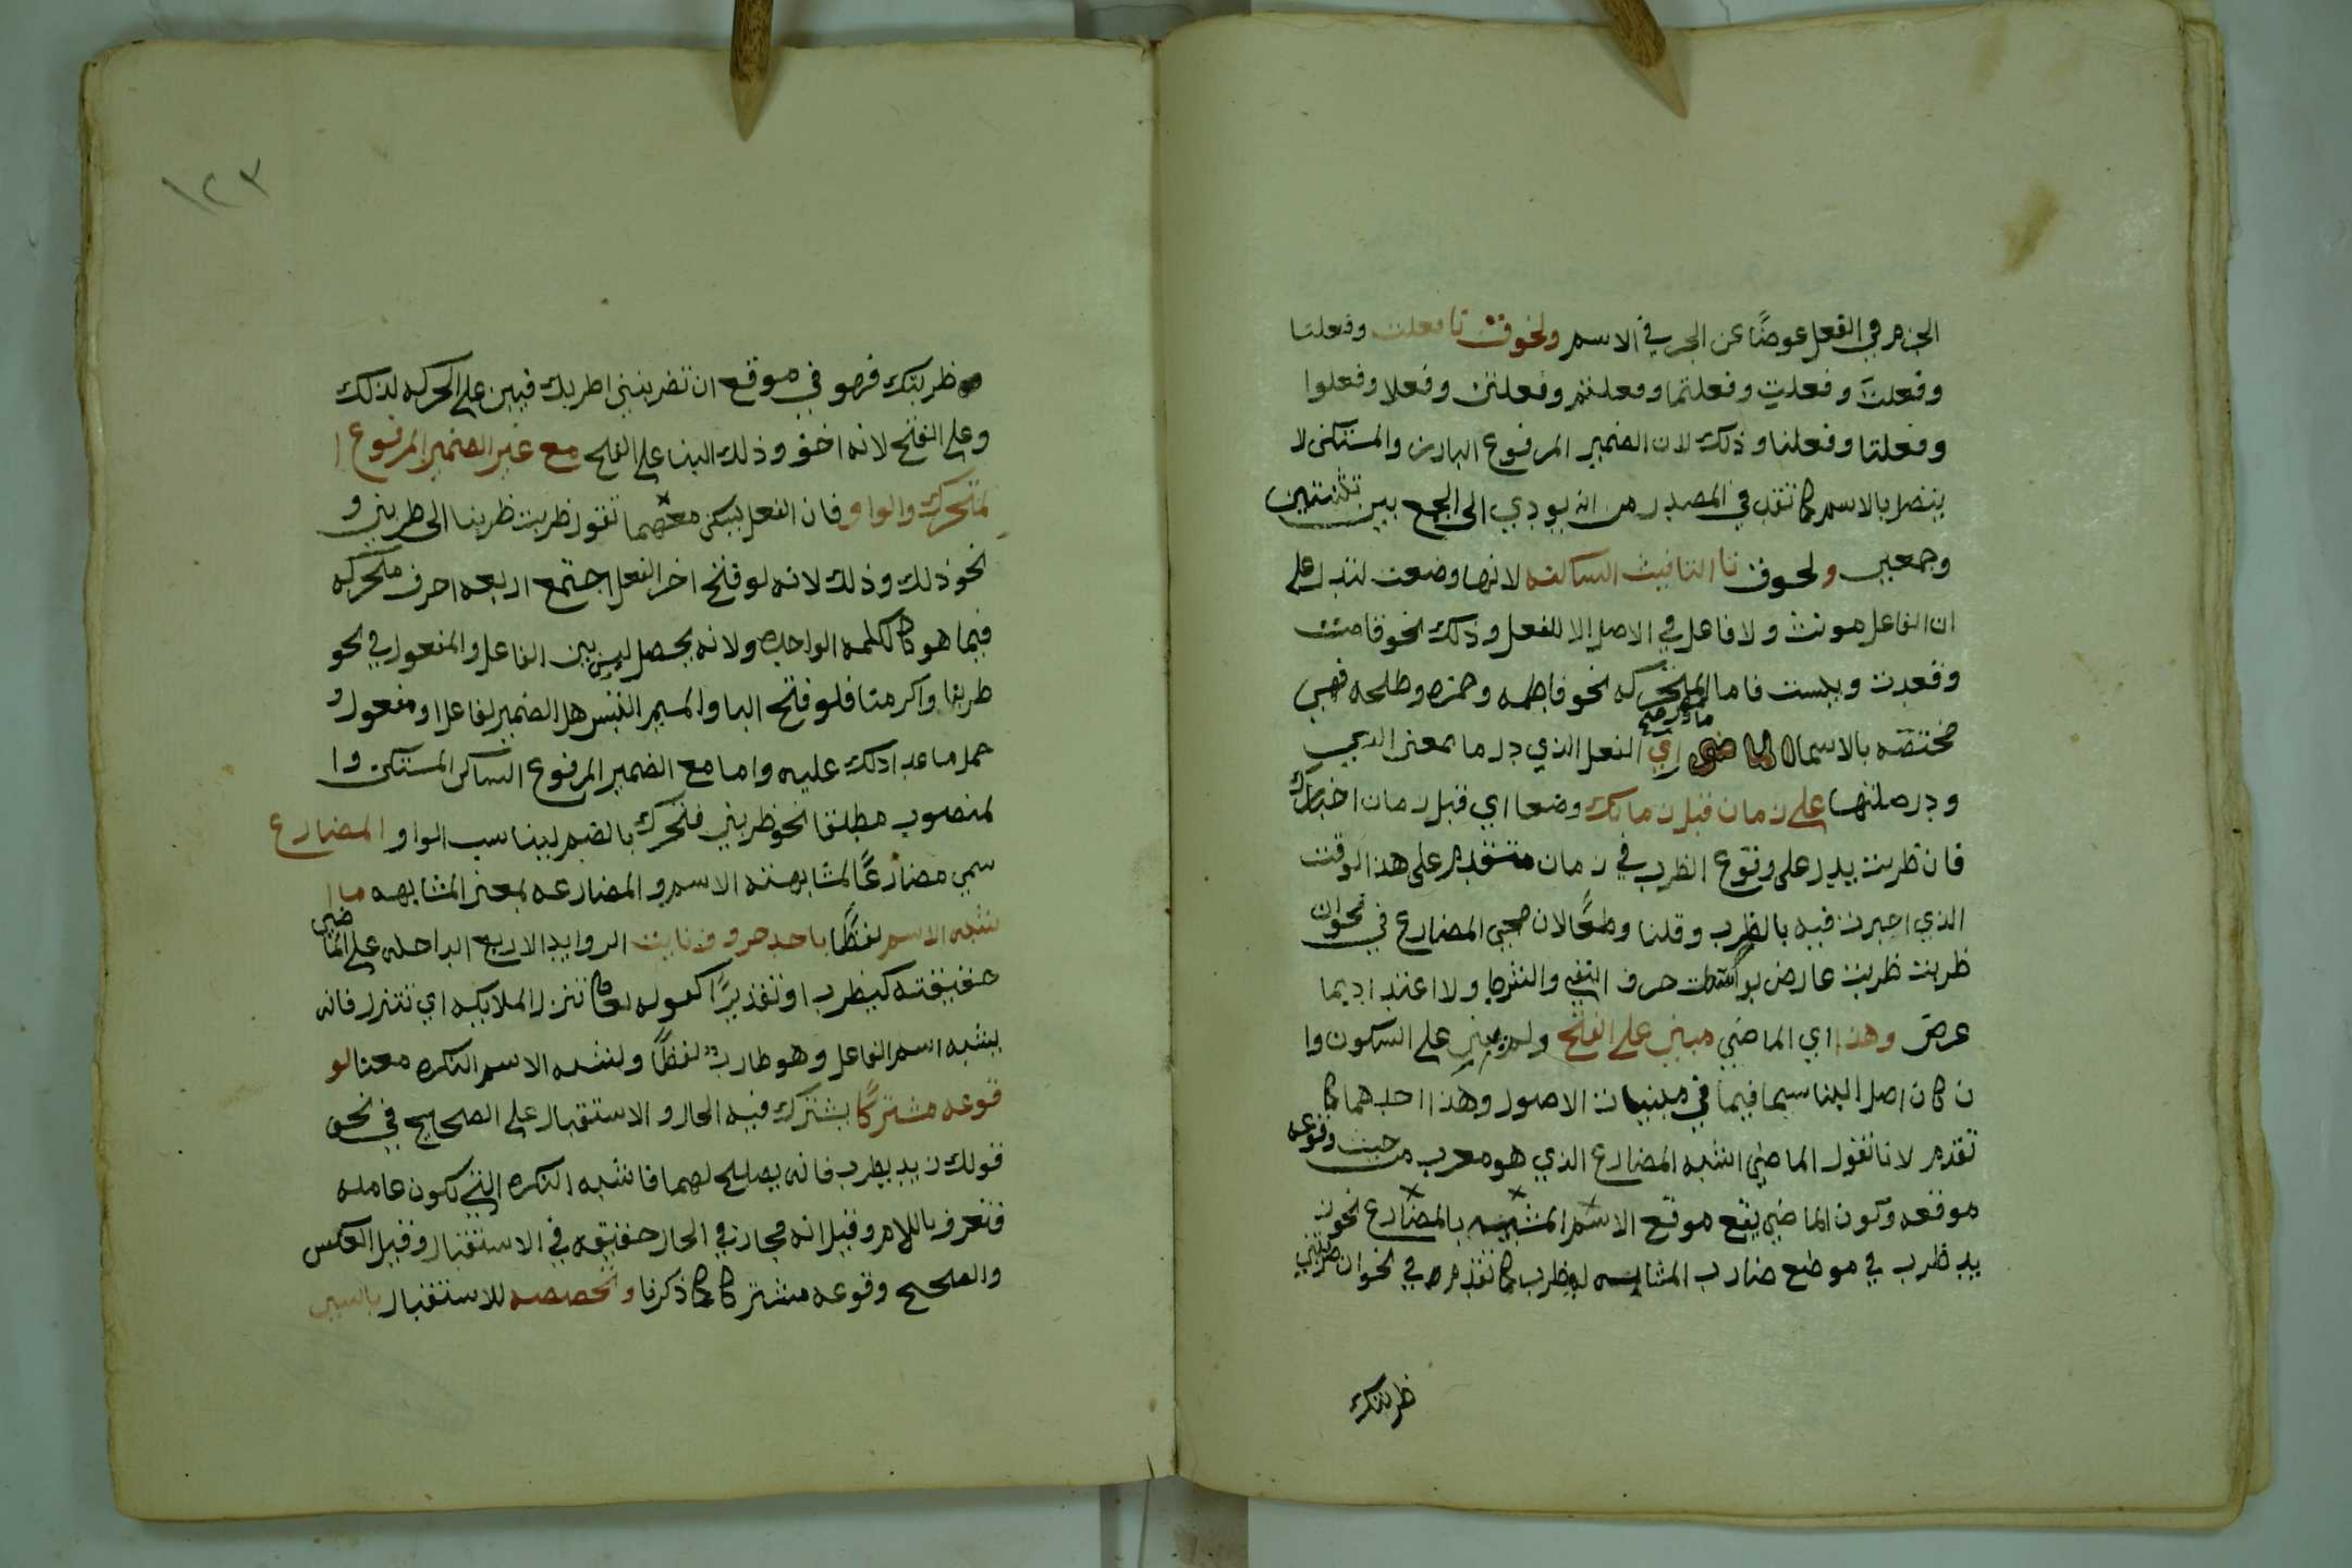 الجزم في الفعل عوضًا عن الجر في الاسم ولحوق تا فعلت وفعلنا
وفعلتَ وفعلتِ وفعلتما وفعلتم وفعلتن وفعلا وفعلوا
وفعلتا وفعلنا وذلك لان الضمير المرفوع البارز والمستكن لا
يتصل بالاسم كما تقدم في المصدر من انه يودي الى الجمع بين تثنيتين
وجمعين ولحوق تا التانيث الساكنه لانها وضعت لتدل على
ان الفاعل مونث ولا فاعل في الاصل الا للفعل وذلك نحو قامت
وقعدت وجلست فاما المتحركه نحو فاطمه وحمزه وطلحه فهي
مختصه بالاسما الماضي ما دل اي الفعل الذي دل ما بمعنى الذي
ودل صلتها على زمان قبل زمانك وضعا اي قبل زمان اخبارك
فان ظربت يدل على وقوع الظرب في زمان متقدم على هذا الوقت
الذي اخبرت فيه بالظرب وقلنا وضعًا لان مجي المضارع في نحو ان
ظربت ظربت عارض بواسطت حرف النفي والشرط ولا اعتداد بما
عرض وهذا اي الماضي مبني على الفتح ولم يبنى على السكون وا
ن كان اصل البنا سيما فيما في مبنيات الاصول وهذا احدهما كما
تقدم لانا نقول الماضي اشبه المضارع الذي هو معرب من حيث وقوعه
موقعه وكون الماضي يقع موقع الاسم المشبه بالمضارع نحو ز
يد ظرب في موضع ضارب المشابه ليظرب كما تقدم في نحو ان ظربتني
ظربتك
١٢٣
ظربتك فهو في موقع ان تضربيني اظربك فبني على الحركه لذلك
وعلى الفتح لانه اخف وذلك البنا على الفتح مع غير الضمير المرفوع ا
لمتحرك والواو فان الفعل يسكن معهما تقول ظربت ظربنا الى ظربتن و
نحو ذلك وذلك لانه لو فتح اخر الفعل اجتمع اربعه احرف متحركه
فيما هو كالكلمه الواحده ولانه يحصل لبس بين الفاعل والمفعول في نحو
ظربنا واكرمنا فلو فتح البا والميم التبس هل الضمير لفاعل او مفعول و
حمل ماعدا ذلك عليه واما مع الضمير المرفوع الساكن المستكن وا
لمنصوب مطلقا نحو ظربني فتحرك بالضم ليناسب الواو المضارع
سمي مضارعًا لمشابهته الاسم والمضارعه بمعنى المشابهه ما ا
شبه الاسم لفظًا باحد حروف نايت الزوايد الاربع الداخله على الماضي
حقيقته كيظرب او تقديرًا كقوله تعالى تنزل الملايكه اي تتنزل فانه
يشبه اسم الفاعل وهو ظارب لفظًا ويشبه الاسم النكره معنا لو
قوعه مشتركًا يشترك فيه الحال والاستقبال على الصحيح في نحو
قولك زيد يظرب فانه يصلح لهما فاشبه النكره التي تكون عامله
فتعرف باللام وقيل انه مجاز في الحال حقيقه في الاستقبال وقيل العكس
والصحيح وقوعه مشتركا كما ذكرنا وتخصصه للاستقبال بالسين